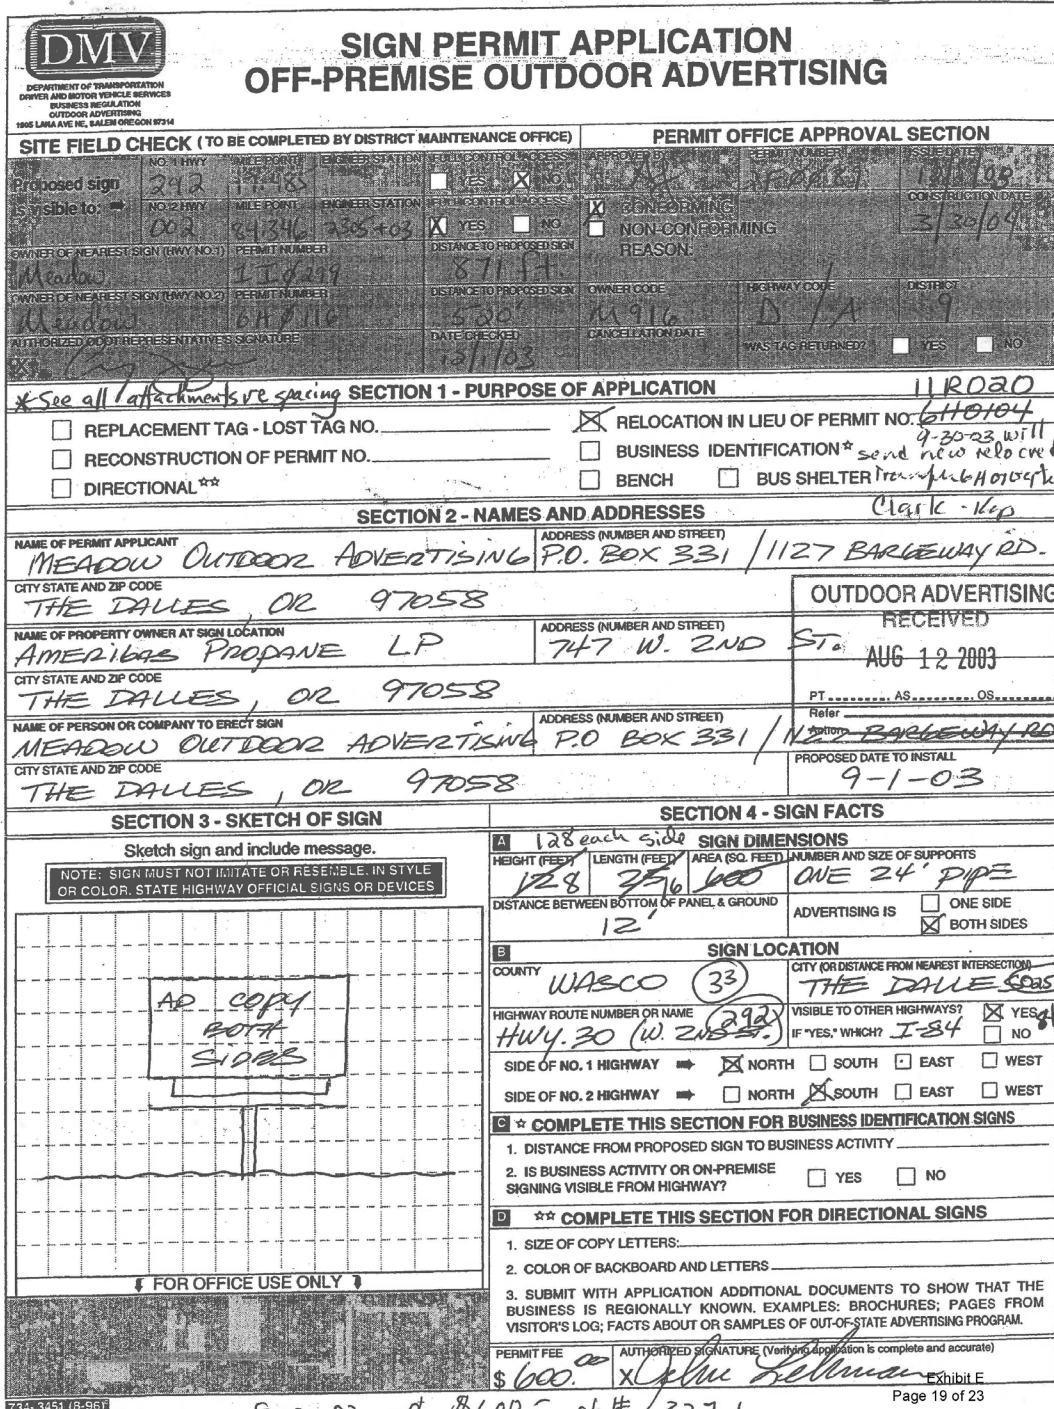 DMV
DEPARTMENT OF TRANSPORTATION
DRIVER AND MOTOR VEHICLE SERVICES
BUSINESS REGULATION
OUTDOOR ADVERTISING
1905 LANA AVE NE, SALEM OREGON 97314
SIGN PERMIT APPLICATION
OFF-PREMISE OUTDOOR ADVERTISING
SITE FIELD CHECK (TO BE COMPLETED BY DISTRICT MAINTENANCE OFFICE)
PERMIT OFFICE APPROVAL SECTION
Proposed sign is visible to:
NO. 1 HWY 292 MILE POINT ENGINEER STATION FULL CONTROL ACCESS YES X NO
NO. 2 HWY 002 MILE POINT 84.346 ENGINEER STATION 2305+03 X YES NO
APPROVED BY PERMIT NUMBER ISSUE DATE
X CONFORMING
NON-CONFORMING
REASON:
CONSTRUCTION DATE 3/30/04
OWNER OF NEAREST SIGN (HWY NO.1) Meadow PERMIT NUMBER DISTANCE TO PROPOSED SIGN 871 ft.
OWNER OF NEAREST SIGN (HWY NO.2) Meadow PERMIT NUMBER 6HØ116 DISTANCE TO PROPOSED SIGN 520'
OWNER CODE M916 HIGHWAY CODE D / A DISTRICT 9
AUTHORIZED ODOT REPRESENTATIVE'S SIGNATURE
DATE CHECKED 12/1/03
CANCELLATION DATE
WAS TAG RETURNED? YES NO
* See all attachments re spacing SECTION 1 - PURPOSE OF APPLICATION 11R020
REPLACEMENT TAG - LOST TAG NO.
X RELOCATION IN LIEU OF PERMIT NO. 6H0104
9-30-03 will
RECONSTRUCTION OF PERMIT NO.
BUSINESS IDENTIFICATION☆ send new relo cred
DIRECTIONAL☆☆
BENCH BUS SHELTER
SECTION 2 - NAMES AND ADDRESSES Clark -
NAME OF PERMIT APPLICANT MEADOW OUTDOOR ADVERTISING
ADDRESS (NUMBER AND STREET) P.O. BOX 331 / 1127 BARGEWAY RD.
CITY STATE AND ZIP CODE THE DALLES, OR 97058
OUTDOOR ADVERTISING
RECEIVED
AUG 12 2003
PT AS OS
Refer
Action
NAME OF PROPERTY OWNER AT SIGN LOCATION AMERIGAS PROPANE LP
ADDRESS (NUMBER AND STREET) 747 W. 2ND ST.
CITY STATE AND ZIP CODE THE DALLES, OR 97058
NAME OF PERSON OR COMPANY TO ERECT SIGN MEADOW OUTDOOR ADVERTISING
ADDRESS (NUMBER AND STREET) P.O BOX 331 / 1127 BARGEWAY RD
CITY STATE AND ZIP CODE THE DALLES, OR 97058
PROPOSED DATE TO INSTALL 9-1-03
SECTION 3 - SKETCH OF SIGN
Sketch sign and include message.
NOTE: SIGN MUST NOT IMITATE OR RESEMBLE, IN STYLE
OR COLOR, STATE HIGHWAY OFFICIAL SIGNS OR DEVICES
AD COPY
BOTH
SIDES
FOR OFFICE USE ONLY
SECTION 4 - SIGN FACTS
A 128 each side SIGN DIMENSIONS
HEIGHT (FEET) 8 LENGTH (FEET) 16 AREA (SQ. FEET) 600
NUMBER AND SIZE OF SUPPORTS ONE 24" PIPE
DISTANCE BETWEEN BOTTOM OF PANEL & GROUND 12'
ADVERTISING IS ONE SIDE
X BOTH SIDES
B SIGN LOCATION
COUNTY WASCO 33
CITY (OR DISTANCE FROM NEAREST INTERSECTION) THE DALLES
HIGHWAY ROUTE NUMBER OR NAME HWY. 30 (W. 2ND ST.) 292
VISIBLE TO OTHER HIGHWAYS? X YES
IF "YES," WHICH? I-84 NO
SIDE OF NO. 1 HIGHWAY X NORTH SOUTH EAST WEST
SIDE OF NO. 2 HIGHWAY NORTH X SOUTH EAST WEST
C ☆ COMPLETE THIS SECTION FOR BUSINESS IDENTIFICATION SIGNS
1. DISTANCE FROM PROPOSED SIGN TO BUSINESS ACTIVITY
2. IS BUSINESS ACTIVITY OR ON-PREMISE
SIGNING VISIBLE FROM HIGHWAY? YES NO
D ☆☆ COMPLETE THIS SECTION FOR DIRECTIONAL SIGNS
1. SIZE OF COPY LETTERS:
2. COLOR OF BACKBOARD AND LETTERS
3. SUBMIT WITH APPLICATION ADDITIONAL DOCUMENTS TO SHOW THAT THE
BUSINESS IS REGIONALLY KNOWN. EXAMPLES: BROCHURES; PAGES FROM
VISITOR'S LOG; FACTS ABOUT OR SAMPLES OF OUT-OF-STATE ADVERTISING PROGRAM.
PERMIT FEE $ 600.00
AUTHORIZED SIGNATURE (Verifying application is complete and accurate)
X
Exhibit E
Page 19 of 23
734-3451 (8-96)